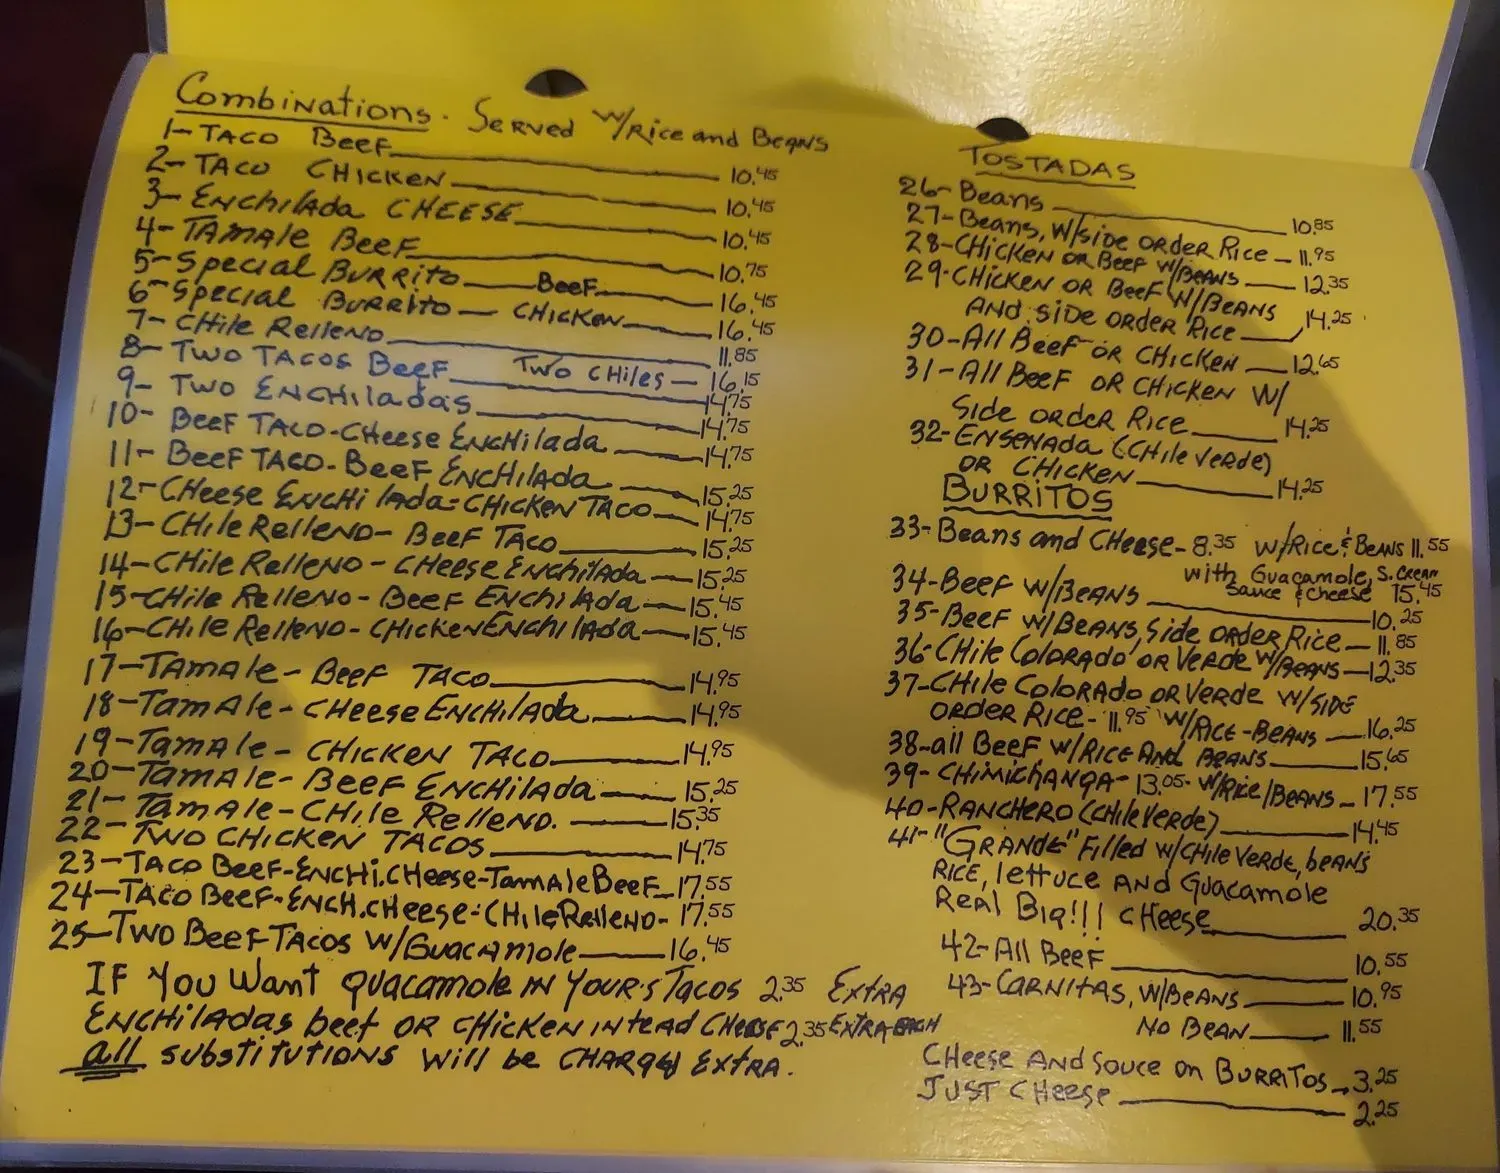 Combinations. Served w/Rice and Beans
1- Taco Beef 10.45
2- Taco Chicken 10.45
3- Enchilada Cheese 10.45
4- Tamale Beef 10.75
5- Special Burrito Beef 16.45
6- Special Burrito - Chicken 16.45
7- Chile Relleno 11.85
Two Chiles - 16.15
8- Two Tacos Beef 14.75
9- Two Enchiladas 14.75
10- Beef Taco-Cheese Enchilada 14.75
11- Beef Taco-Beef Enchilada 15.25
12- Cheese Enchilada-Chicken Taco 14.75
13- Chile Relleno- Beef Taco 15.25
14- Chile Relleno - Cheese Enchilada 15.25
15- Chile Relleno- Beef Enchilada 15.45
16- Chile Relleno- Chicken Enchilada 15.45
17- Tamale- Beef Taco 14.95
18- Tamale- Cheese Enchilada 14.95
19- Tamale- Chicken Taco 14.95
20- Tamale- Beef Enchilada 15.25
21- Tamale- Chile Relleno. 15.35
22- Two Chicken Tacos 14.75
23- Taco Beef-Enchi.Cheese-Tamale Beef 17.55
24- Taco Beef-Ench.cheese-Chile Relleno- 17.55
25- Two Beef Tacos w/Guacamole 16.45
If You Want guacamole in Your's Tacos 2.35 Extra
Enchiladas beef or chicken intead Cheese 2.35 Extra each
all substitutions will be charged Extra.
Tostadas
26- Beans 10.85
27- Beans, w/side order Rice - 11.95
28- Chicken or Beef w/Beans 12.35
29- Chicken or Beef w/Beans
And side order Rice 14.25
30- All Beef or Chicken 12.65
31- All Beef or Chicken w/
Side order Rice 14.25
32- Ensenada (Chile Verde)
or Chicken 14.25
Burritos
33- Beans and Cheese- 8.35 w/Rice & Beans 11.55
with Guacamole, S. Cream
Sauce & cheese 15.45
34- Beef w/Beans 10.25
35- Beef w/Beans, Side order Rice - 11.85
36- Chile Colorado or Verde w/Beans - 12.35
37- Chile Colorado or Verde w/side
order Rice- 11.95 w/Rice-Beans 16.25
38- all Beef w/Rice And Beans 15.65
39- Chimichanga- 13.05- w/Rice/Beans - 17.55
40- Ranchero (Chile Verde) 14.45
41- "Grande" Filled w/Chile Verde, beans
Rice, lettuce And Guacamole
Real Big!!! cheese 20.35
42- All Beef 10.55
43- Carnitas, w/Beans 10.95
No Bean 11.55
Cheese And Souce on Burritos - 3.25
Just Cheese 2.25